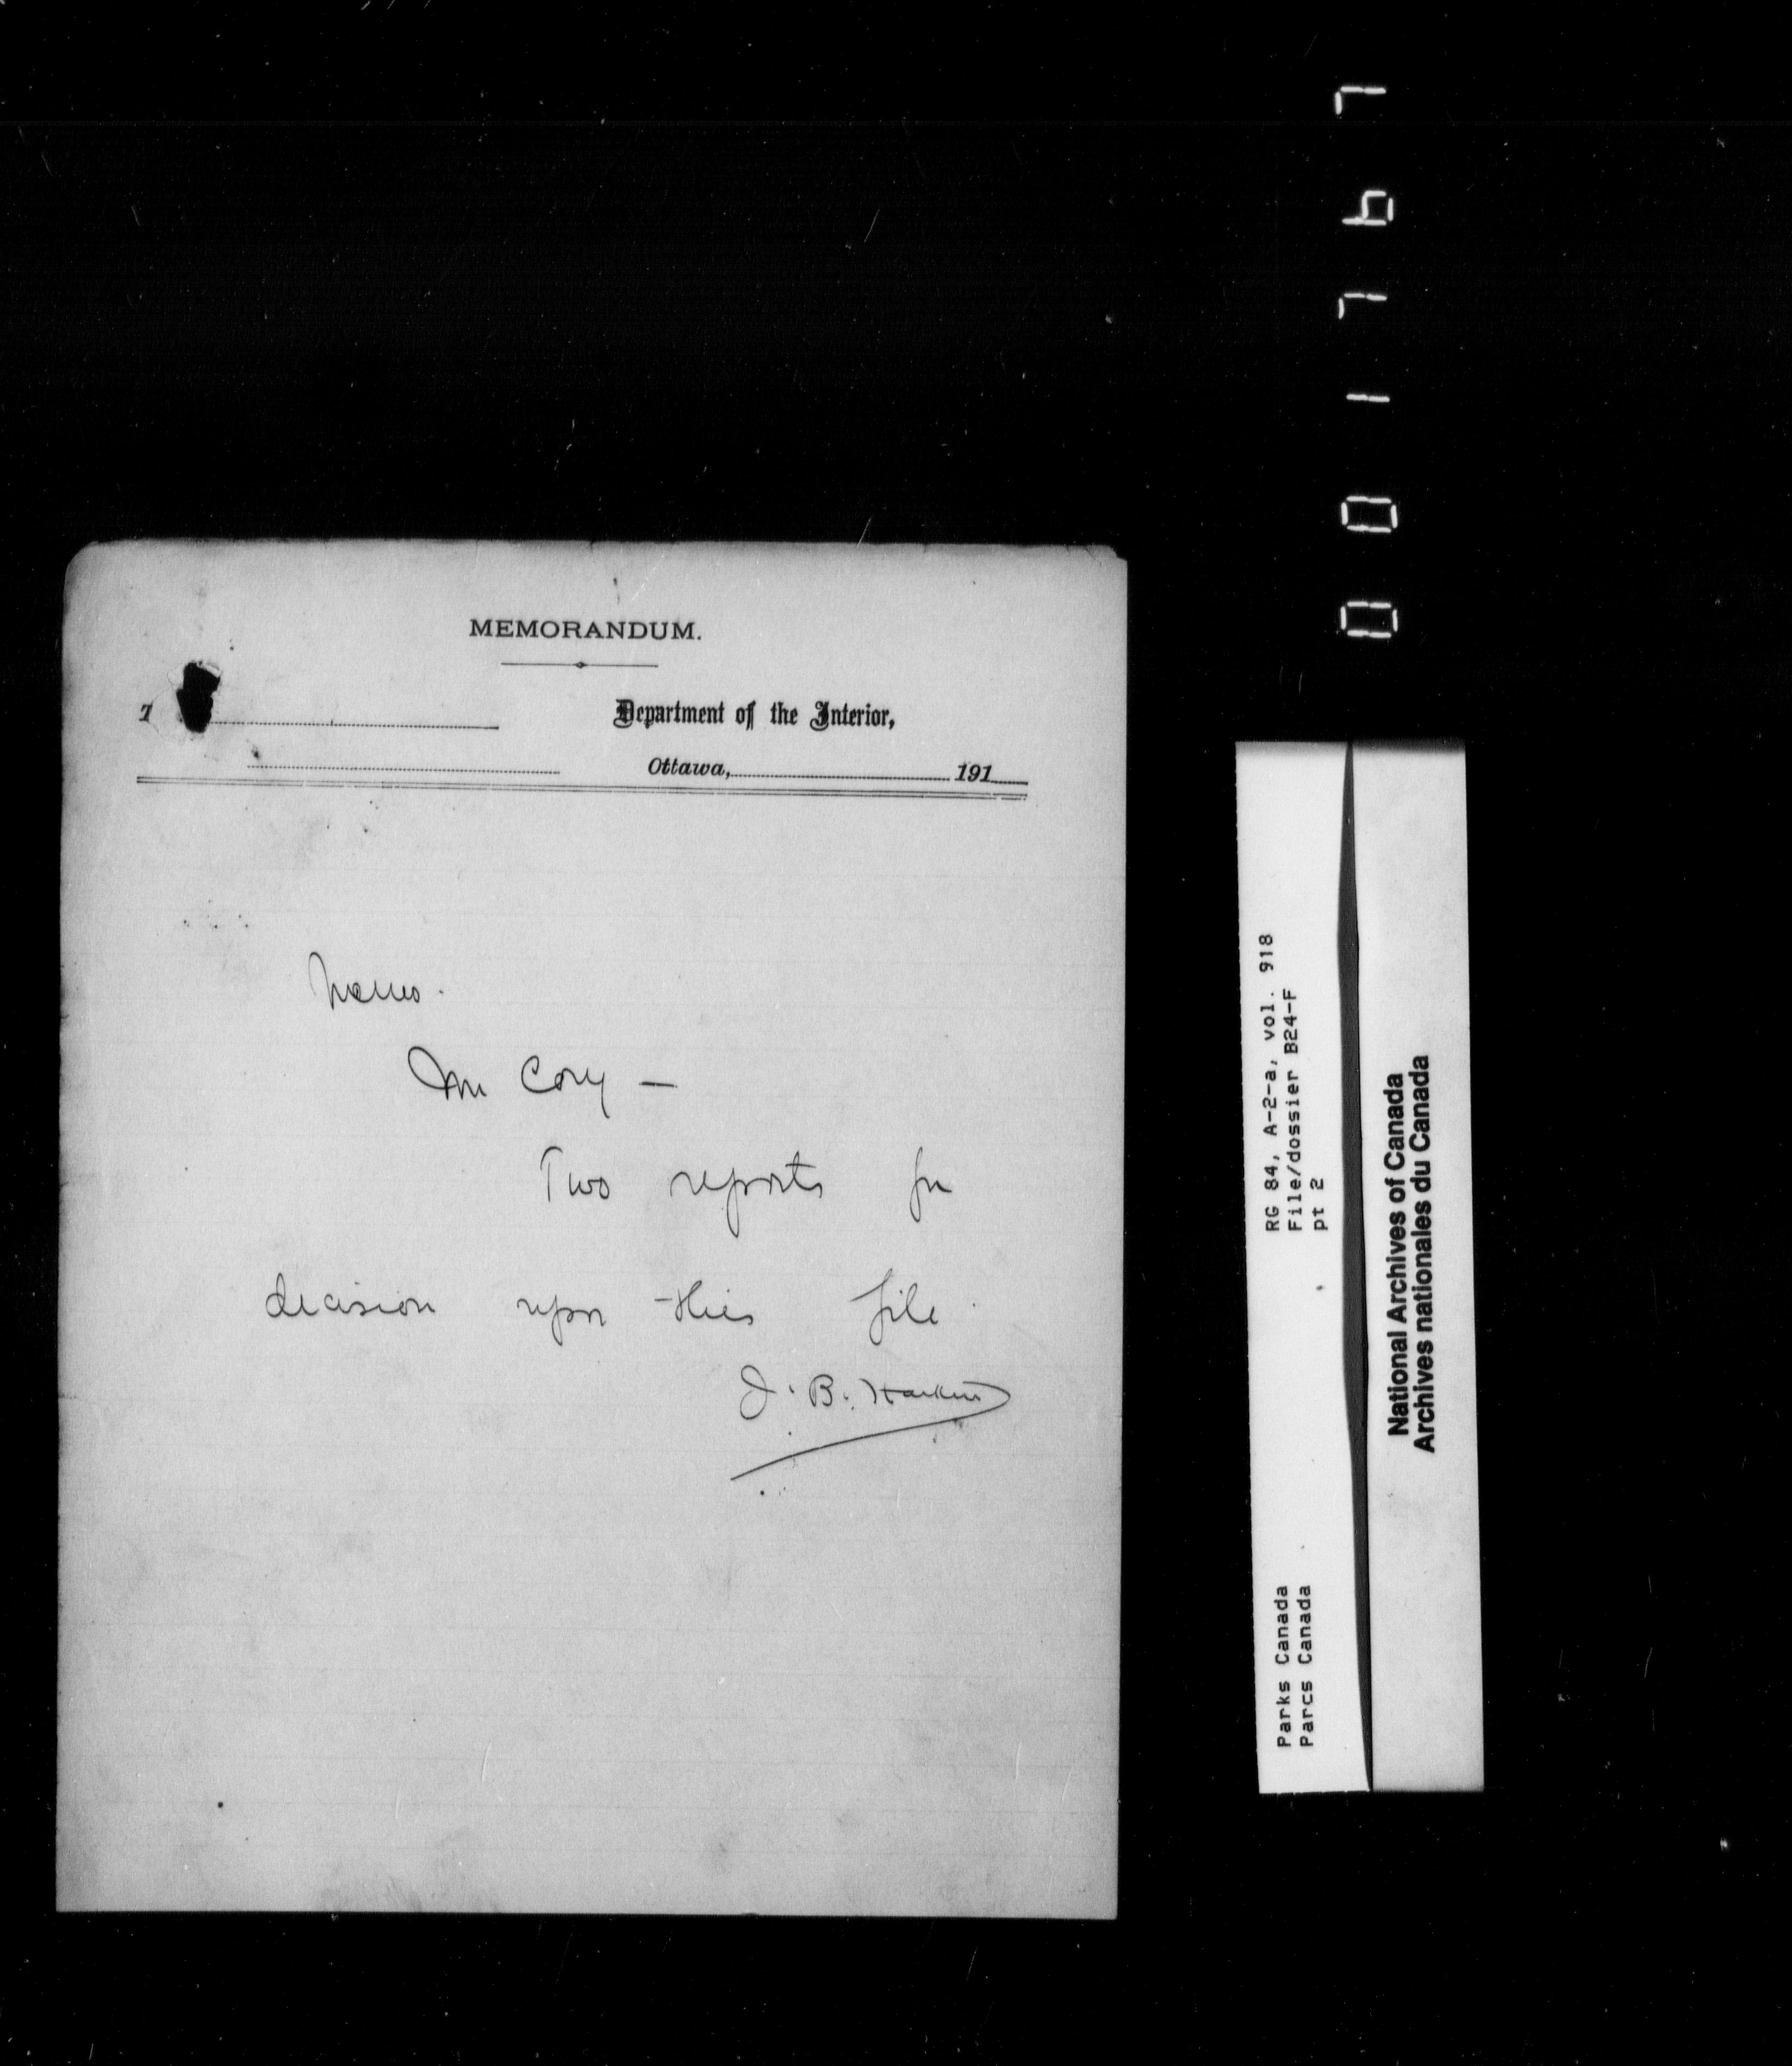 MEMORANDUM.
Department of the Interior,
Ottawa, 191
Memo.
Mr Cory —
Two reports for
decision upon this file.
J. B. Harkin
001767
RG 84, A-2-a, vol. 918
File/dossier B24-F
pt 2
Parks Canada
Parcs Canada
National Archives of Canada
Archives nationales du Canada